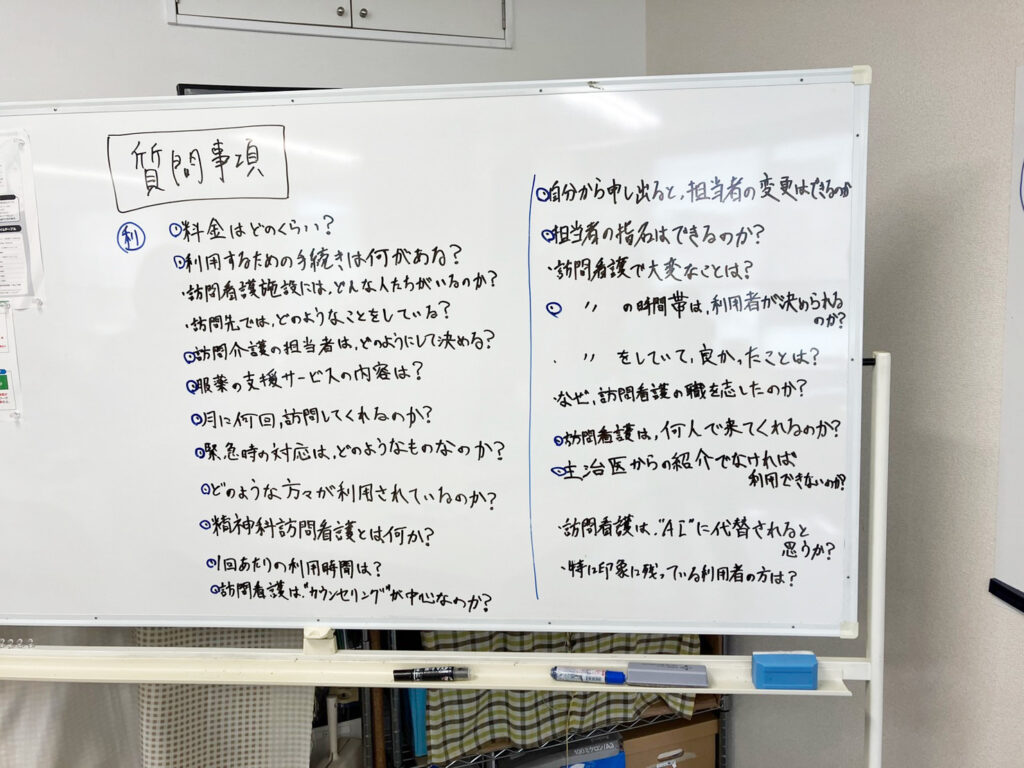 質問事項
利
・料金はどのくらい?
・利用するための手続きは何がある?
・訪問看護施設には、どんな人たちがいるのか?
・訪問先では、どのようなことをしている?
・訪問介護の担当者は、どのようにして決める?
・服薬の支援サービスの内容は?
・月に何回、訪問してくれるのか?
・緊急時の対応は、どのようなものなのか?
・どのような方々が利用されているのか?
・精神科訪問看護とは何か?
・1回あたりの利用時間は?
・訪問看護は、"カウンセリング"が中心なのか?
・自分から申し出ると、担当者の変更はできるのか
・担当者の指名はできるのか?
・訪問看護で大変なことは?
・ 〃 の時間帯は、利用者が決められる
のか?
・ 〃 をしていて、良かったことは?
・なぜ、訪問看護の職を志したのか?
・訪問看護は、何人で来てくれるのか?
・主治医からの紹介でなければ
利用できないのか?
・訪問看護は、"AI"に代替されると
思うか?
・特に印象に残っている利用者の方は?